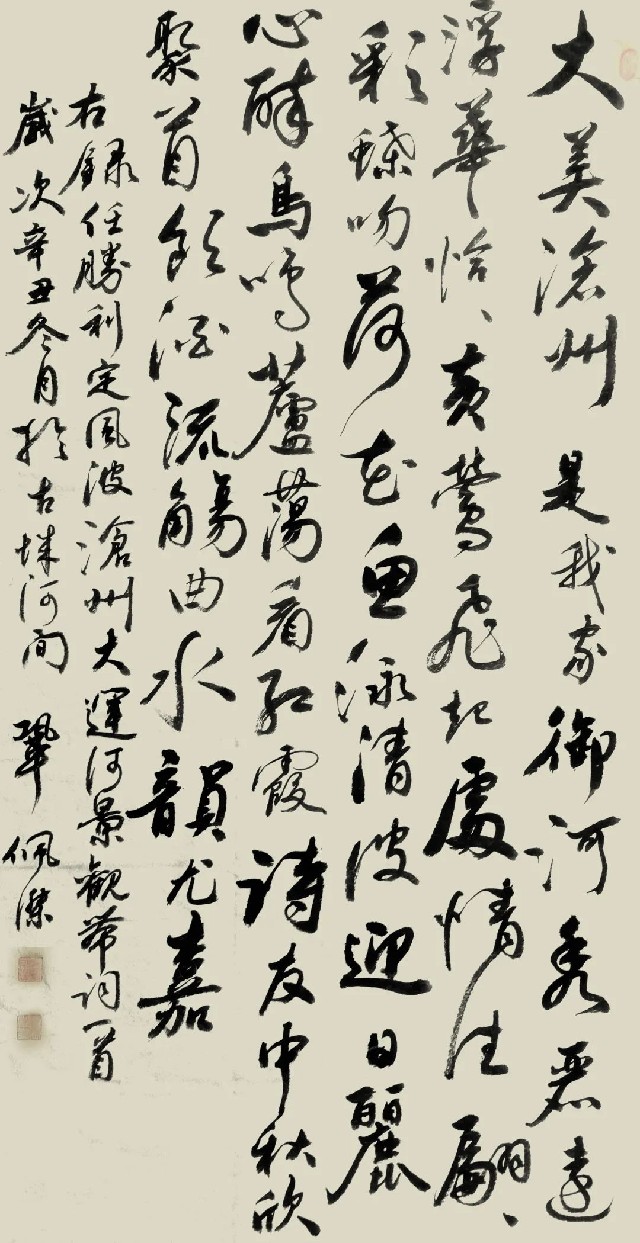 大美滄州是我家御河秀麗遠
浮華恰恰黃鶯飛起處情注翩翩
彩蝶吻荷花魚泳清波迎日麗
心醉鳥鳴蘆蕩看紅霞詩友中秋欣
聚首飲酒流觴曲水韻尤嘉
右錄任勝利定風波滄州大運河景觀帶詞一首
歲次辛丑冬月於古城河間鞏佩傑